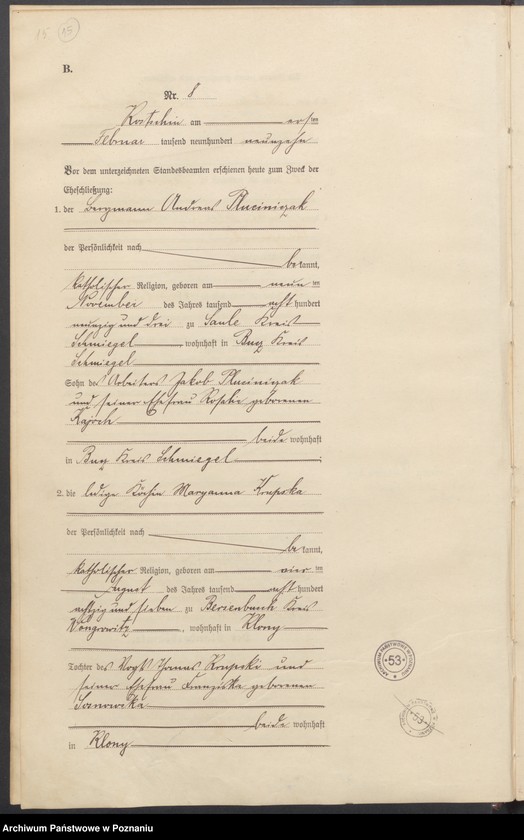 15 15
B.
Nr. 8
Kostschin am ersten
Februar tausend neunhundert neunzehn
Vor dem unterzeichneten Standesbeamten erschienen heute zum Zweck der
Eheschließung:
1. der Bergmann Andreas Pluciniczak
der Persönlichkeit nach
bekannt,
katholischer Religion, geboren am neunten
November des Jahres tausend achthundert
neunzig und drei zu Saule Kreis
Schmiegel, wohnhaft in Bucz Kreis
Schmiegel
Sohn des Arbeiters Jakob Pluciniczak
und seiner Ehefrau geborenen
beide wohnhaft
in Bucz Kreis Schmiegel
2. die ledige Köchin Maryanna Krupska
der Persönlichkeit nach
bekannt,
katholischer Religion, geboren am vierten
August des Jahres tausend achthundert
achtzig und sieben zu Kreis
Wongrowitz, wohnhaft in Klony
Tochter des Vogt Thomas Krupski und
seiner Ehefrau Franziska geborenen
beide wohnhaft
in Klony
53
53
Archiwum Państwowe w Poznaniu